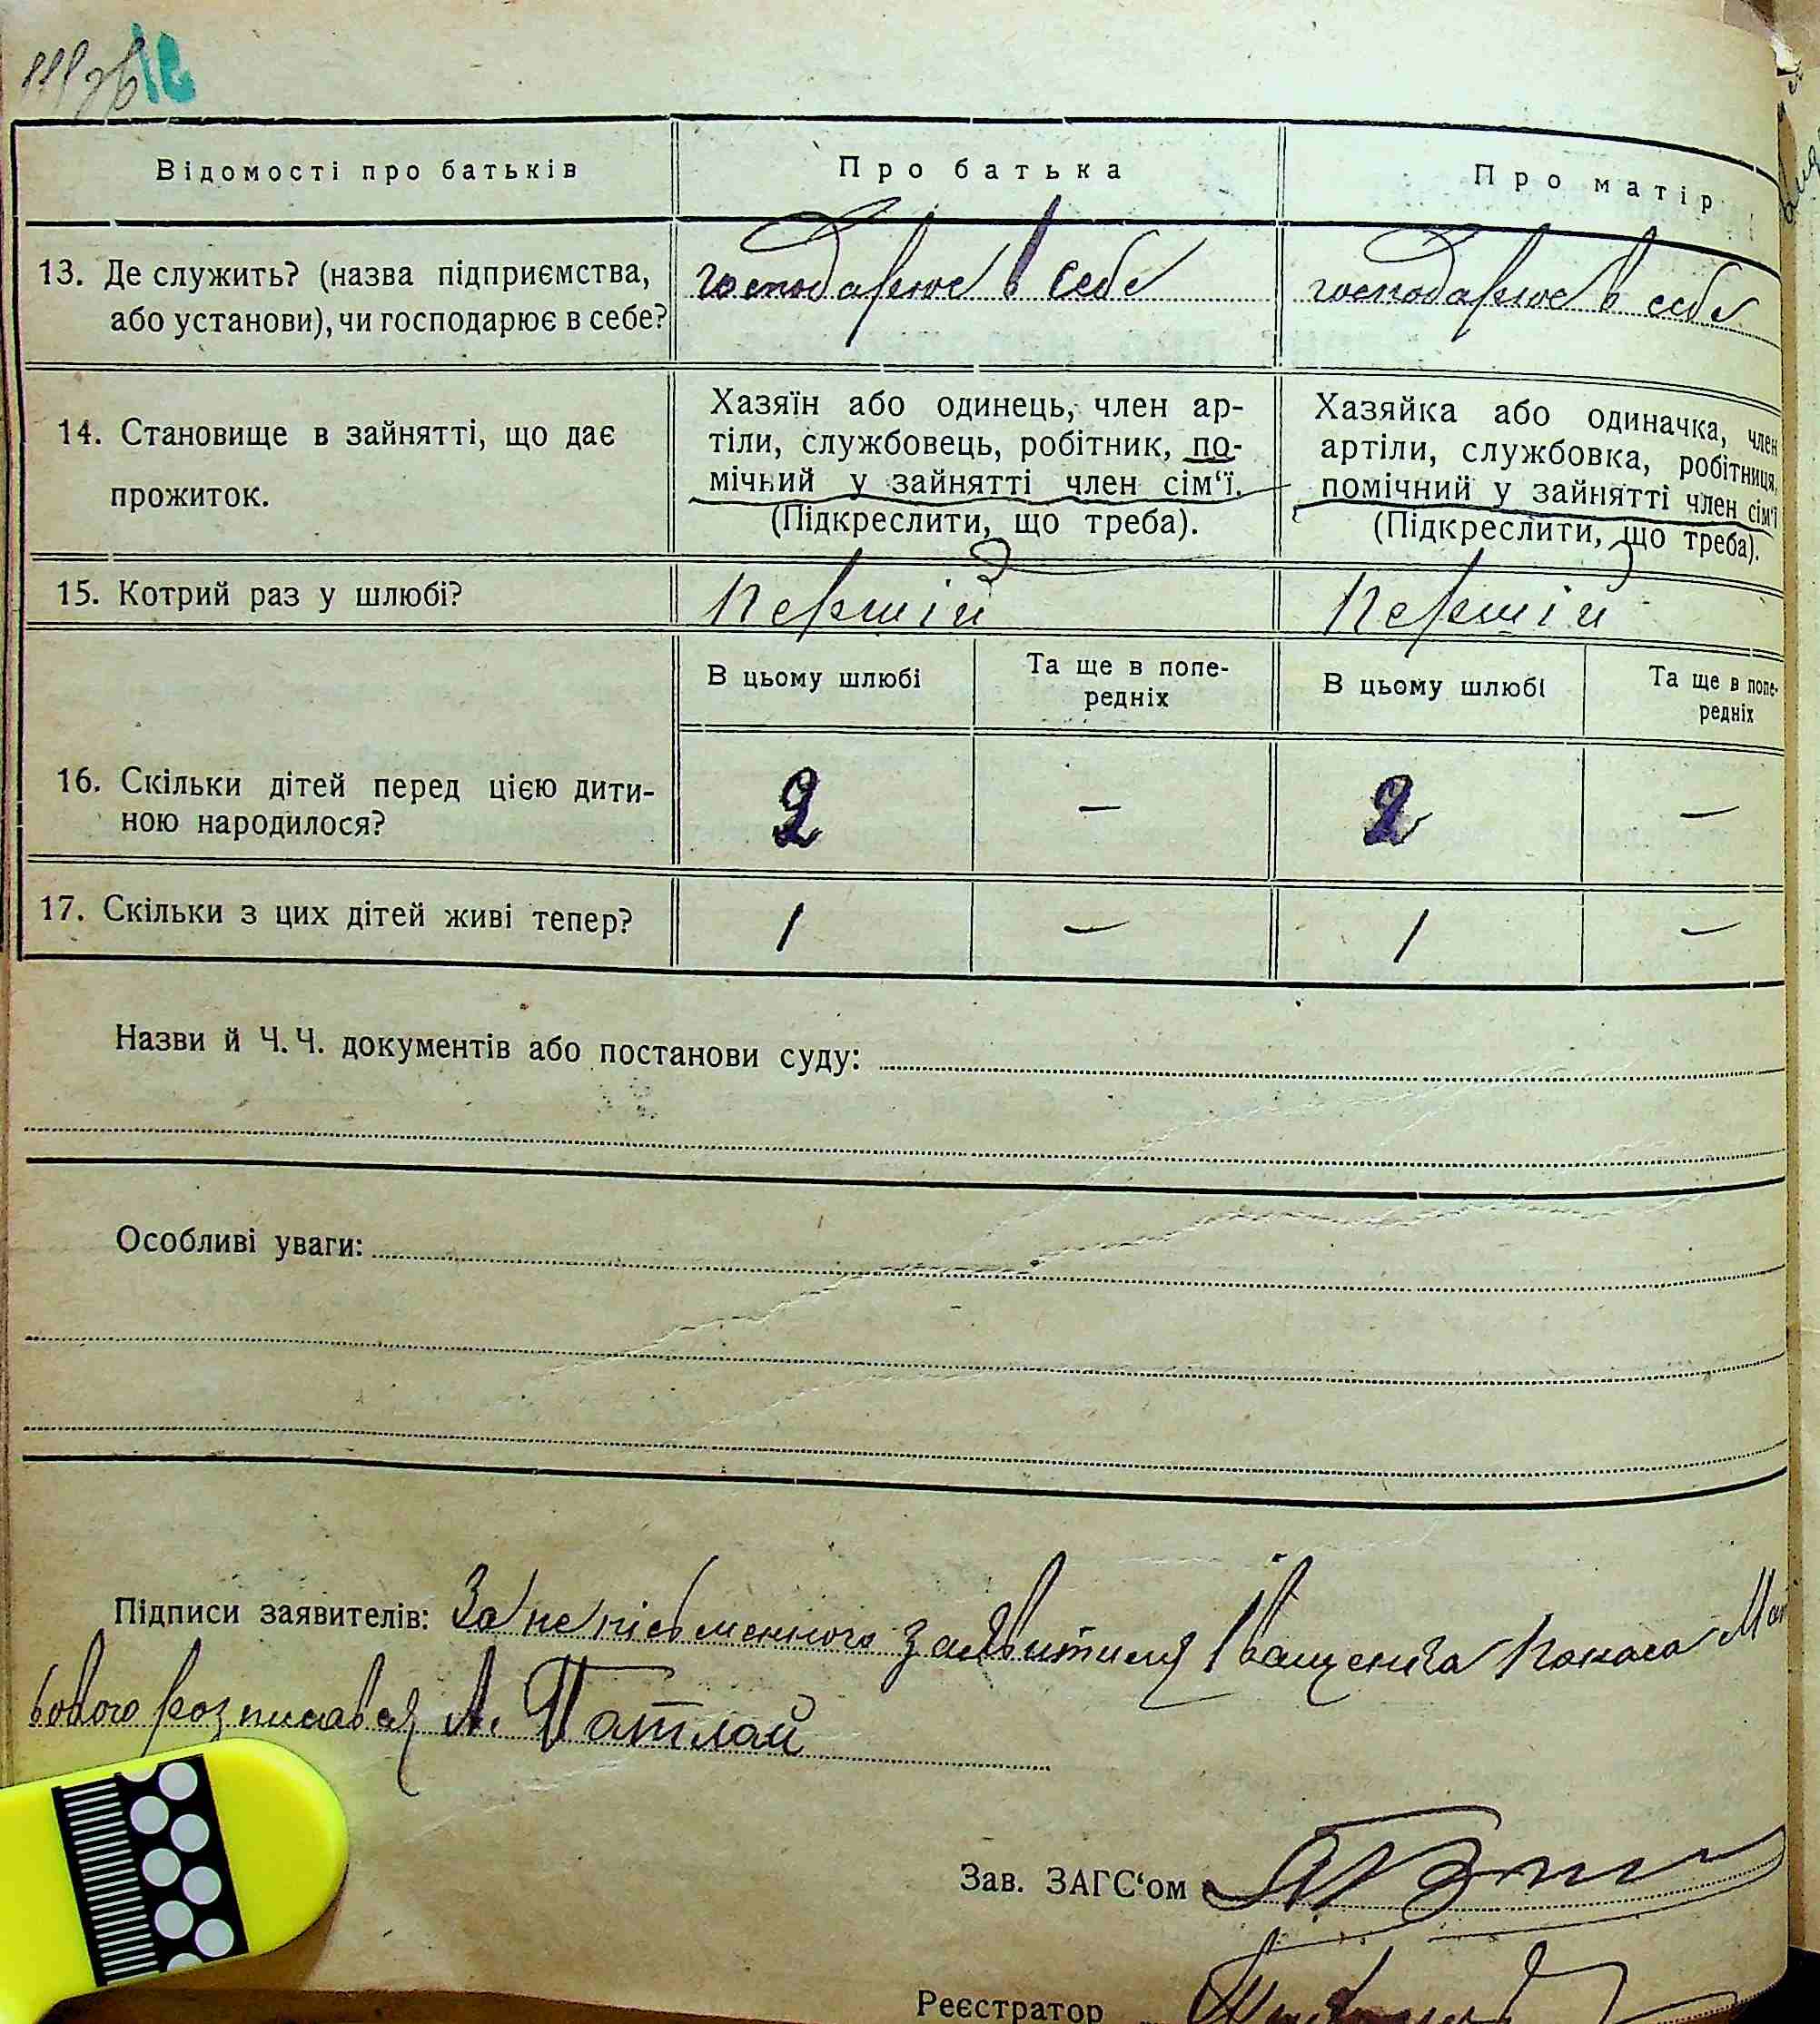 Відомості про батьків
Про батька
Про матір
13. Де служить? (назва підприємства,
або установи), чи господарює в себе?
господарює в себе
господарює в себе
14. Становище в зайнятті, що дає
прожиток.
Хазяїн або одинець, член ар-
тіли, службовець, робітник, по-
мічний у зайнятті член сім‘ї.
(Підкреслити, що треба).
Хазяйка або одиначка, член
артіли, службовка, робітниця,
помічний у зайнятті член сім‘ї
(Підкреслити, що треба).
15. Котрий раз у шлюбі?
першій
першій
В цьому шлюбі
Та ще в попе-
редніх
В цьому шлюбі
Та ще в попе-
редніх
16. Скільки дітей перед цією дити-
ною народилося?
2
—
2
—
17. Скільки з цих дітей живі тепер?
1
—
1
—
Назви й Ч. Ч. документів або постанови суду:
Особливі уваги:
Підписи заявителів: За непісьменного заявителя Іващенка
розписався А. Патлай
Зав. ЗАГС‘ом
Реєстратор